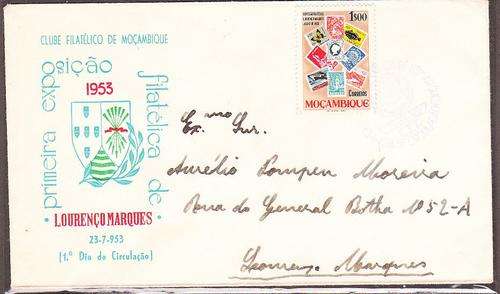 CLUBE FILATÉLICO DE MOÇAMBIQUE
primeira exposição filatélica de
1953
LOURENÇO MARQUES
23-7-953
(1.º Dia de Circulação)
1$00
CORREIOS
MOÇAMBIQUE
Ex.mo Snr.
Aurélio Pompeu Moreira
Rua do General Botha Nº 52-A
Lourenço Marques